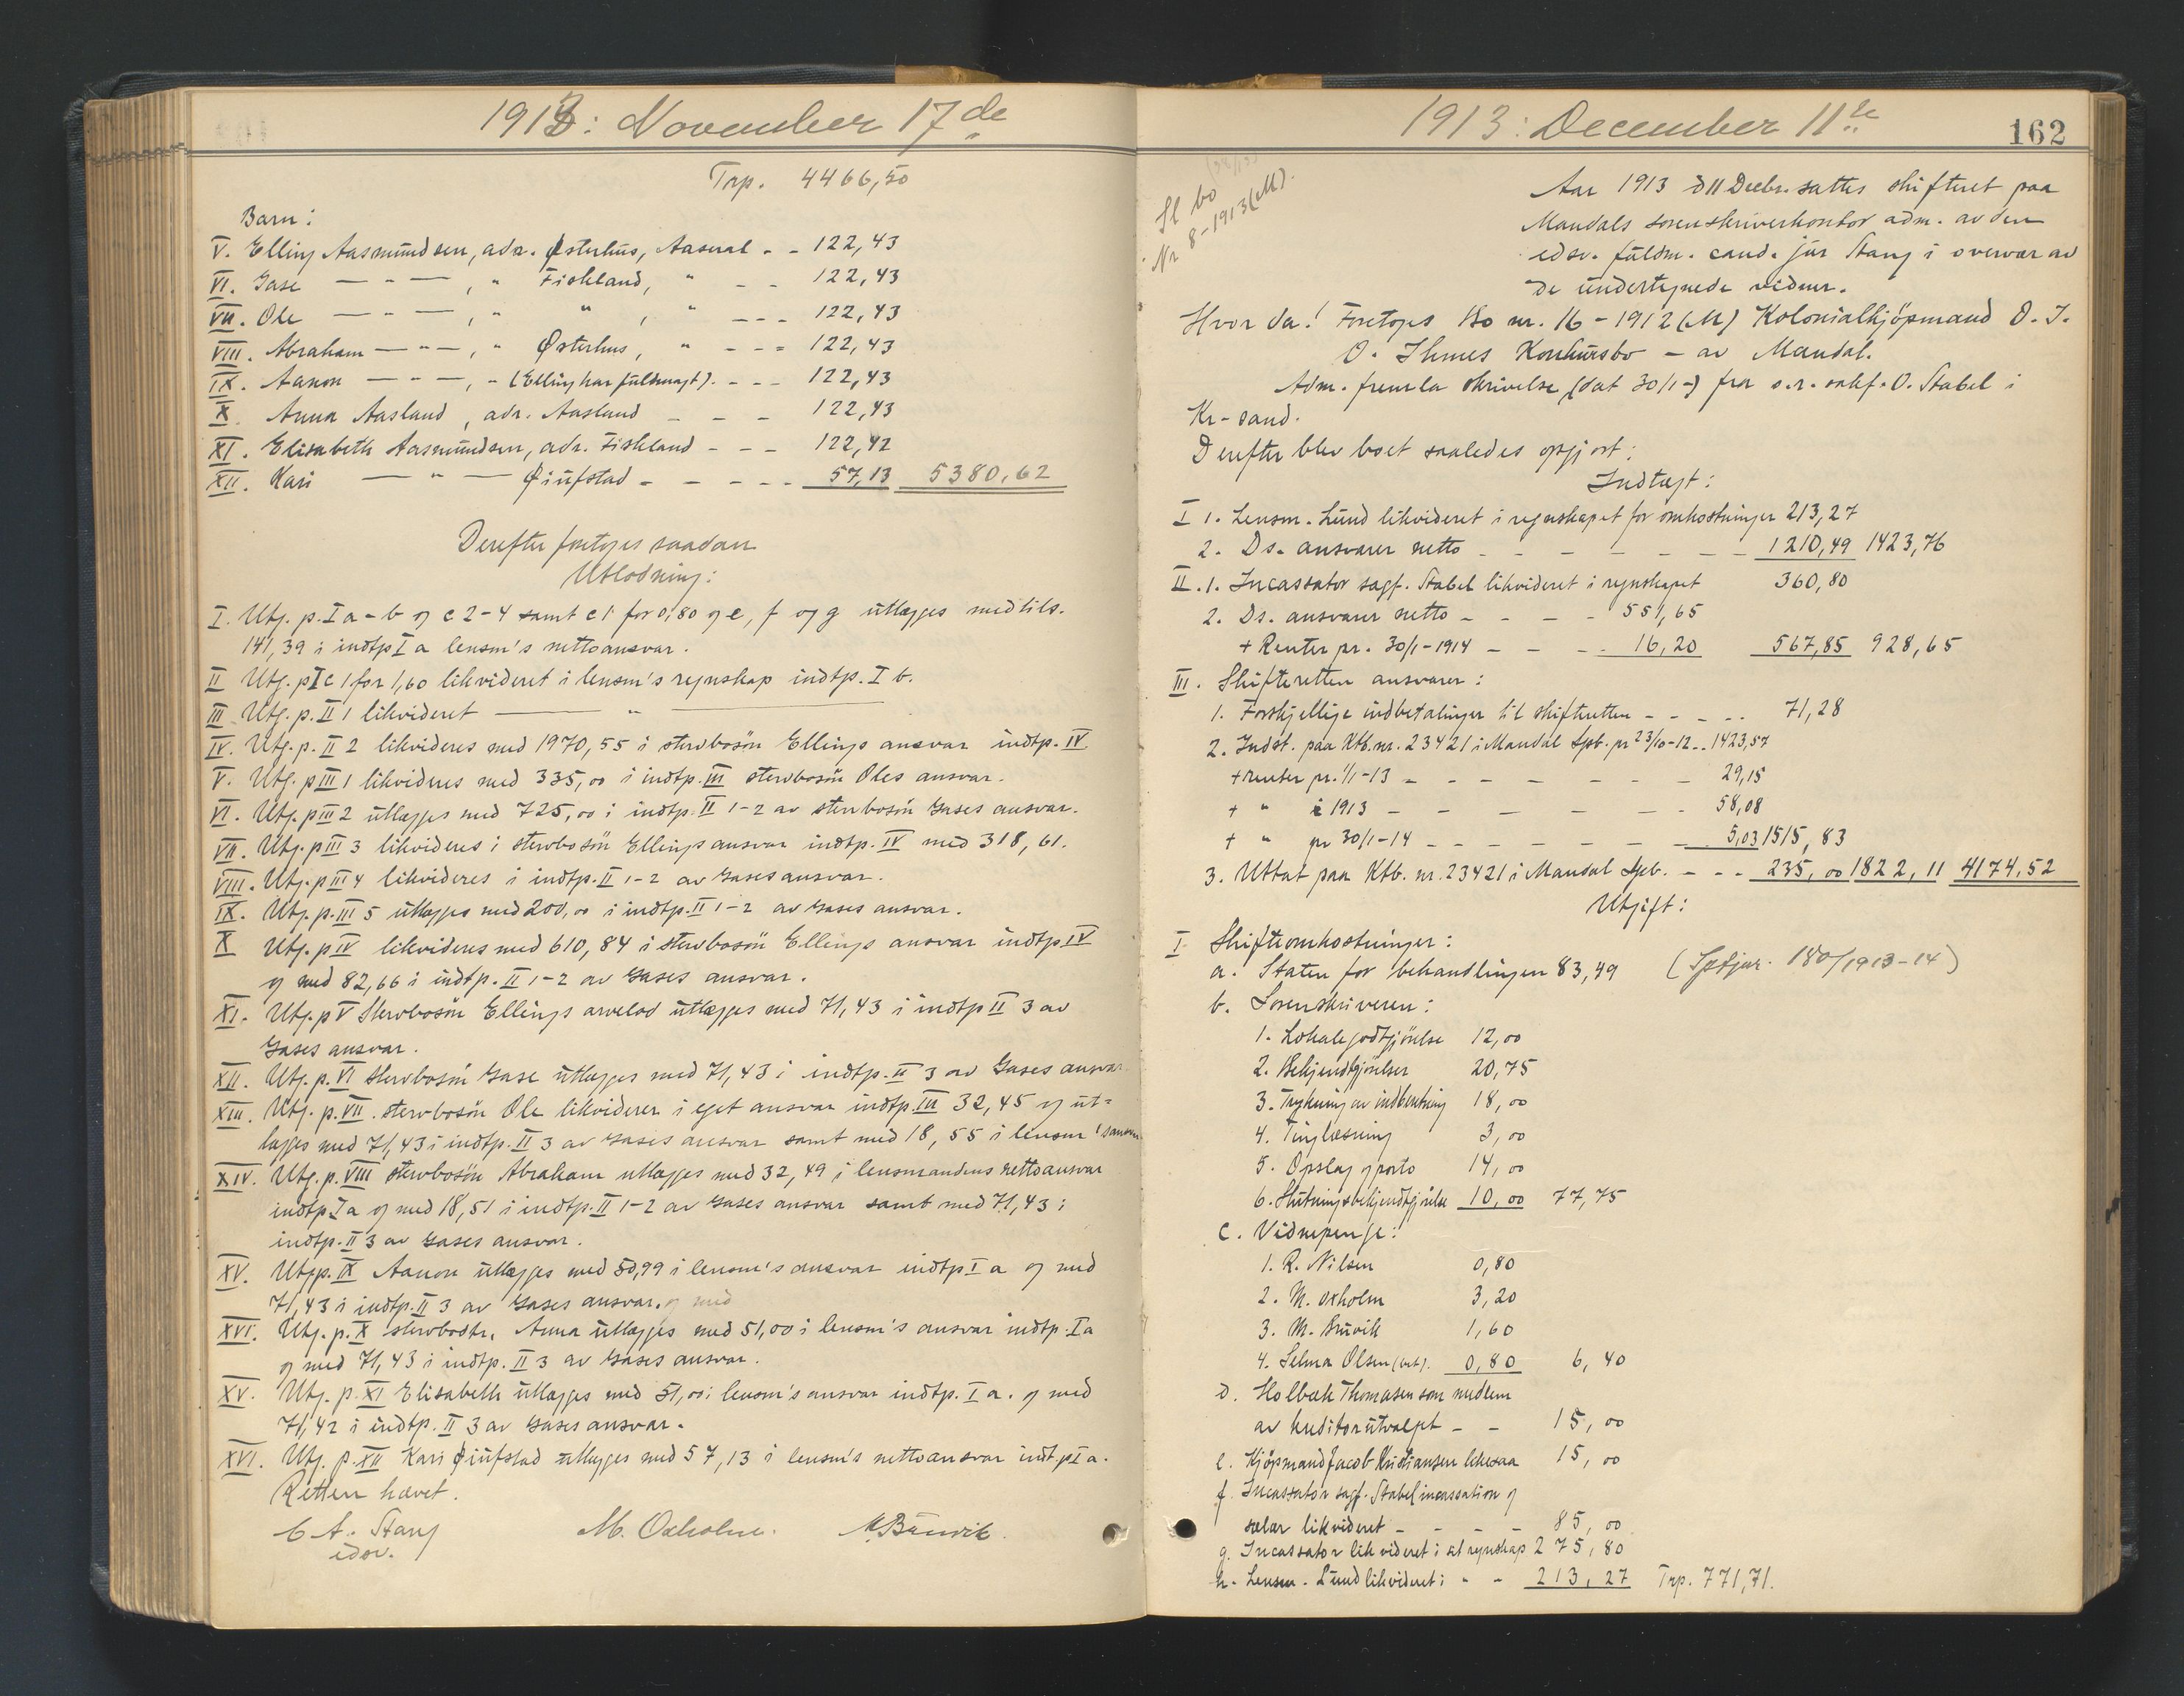 1913: November 17de
Trp. 4466,50
Barn:
V. Elling Aasmundsen, adr. Østerhus, Aaseral - - 122,43
VI. Gase — " — , " Fiskland, " - - 122,43
VII. Ole — " — , " " , " - - - 122,43
VIII. Abraham — " — , " Østerhus, " - - - 122,43
IX. Aanon — " — , - (Elling har fuldmagt). - - - 122,43
X. Anna Aasland, adr. Aasland - - - 122,43
XI. Elisabeth Aasmundsen, adr. Fiskland - - - 122,42
XII. Kari — " — Øiufstad - - - - - 57,13 5380,62
Derefter foretoges saadan
Utlodning:
I. Utg. p. I a-b og c 2-4 samt c 1 for 0,80 og e, f og g utlægges med tils.
141,39 i indtp I a lensm's nettoansvar.
II Utg. p I c 1 for 1,60 likvideret i lensm's regnskap indtp. I b.
III Utg. p. II 1 likvideret — " —
IV. Utg. p. II 2 likvideres med 1970,55 i stervbosøn Ellings ansvar indtp. IV.
V. Utg. p III 1 likvideres med 335,00 i indtp. III stervbosøn Oles ansvar.
VI. Utg. p III 2 utlægges med 725,00 i indtp. II 1-2 av stervbosøn Gases ansvar.
VII. Utg. p III 3 likvideres i stervbosøn Ellings ansvar indtp. IV med 318,61.
VIII. Utg. p III 4 likvideres i indtp. II 1-2 av Gases ansvar.
IX. Utg. p. III 5 utlægges med 200,00 i indtp. II 1-2 av Gases ansvar.
X Utg. p IV likvideres med 610,84 i stervbosøn Ellings ansvar indtp IV
og med 82,66 i indtp. II 1-2 av Gases ansvar.
XI. Utg. p V Stervbosøn Ellings arvelod utlægges med 71,43 i indtp II 3 av
Gases ansvar.
XII. Utg. p. VI stervbosøn Gase utlægges med 71,43 i indtp. II 3 av Gases ansvar
XIII. Utg. p. VII. stervbosøn Ole likviderer i eget ansvar indtp. III 32,45 og ut=
lægges med 71,43 i indtp. II 3 av Gases ansvar samt med 18,55 i lensm's ansv.
XIV. Utg. p. VIII stervbosøn Abraham utlægges med 32,49 i lensmandens nettoansvar
indtp I a og med 18,51 i indtp. II 1-2 av Gases ansvar samt med 71,43 i
indtp. II 3 av Gases ansvar.
XV. Utgp. IX Aanon utlægges med 50,99 i lensm's ansvar indtp I a og med
71,43 i indtp. II 3 av Gases ansvar. og med
XVI. Utg. p. X stervbodtr. Anna utlægges med 51,00 i lensm's ansvar indtp. I a
og med 71,43 i indtp. II 3 av Gases ansvar.
XV. Utg. p. XI Elisabeth utlægges med 51,00 i lensm's ansvar indtp. I a. og med
71,42 i indtp. II 3 av Gases ansvar.
XVI. Utg. p. XII Kari Øiufstad utlægges med 57,13 i lensm's nettoansvar indt.p I a.
Retten hævet.
C A. Stang M. Oxholm. M Bruvik.
edsv.
1913: December 11te
162
Sl bo
Nr 8-1913 (M).
Aar 1913 d 11 Decbr. sattes skifteret paa
Mandals sorenskriverkontor adm. av den
edsv. fuldm. cand. jur Stang i overvær av
de undertegnede vidner.
Hvor da! Foretoges Bo nr. 16-1912 (M) Kolonialkjøpmand O. J.
O. Ihmes Konkursbo - av Mandal.
Adm. fremla skrivelse (dat 30/1-) fra o.r. sakf. O. Stabel i
Kr-sand.
Derefter blev boet saaledes opgjort;
Indtægt:
I 1. Lensm. Lund likvideret i regnskapet for omkostninger 213,27
2. Ds. ansvarer netto - - - - - - 1210,49 1423,76
II. 1. Incassator sagf. Stabel likvideret i regnskapet 360,80
2. Ds. ansvarer netto - - - - 551,65
+ Renter pr. 30/1-1914 - - - 16,20 567,85 928,65
III. Skifteretten ansvarer:
1. Forskjellige indbetalinger til skifteretten - - - - 71,28
2. Indst. paa Ktb. nr. 23421 i Mandal Spb. pr 23/10-12.. 1423,57
+ renter pr. 1/1-13 - - - - - - 29,15
+ " i 1913 - - - - - - 58,08
+ " pr 30/1-14 - - - - - - 5,03 1515,83
3. Uttat paa Ktb. nr. 23421 i Mandal Spb. - - - 235,00 1822,11 4174,52
Utgift:
I Skifteomkostninger:
a. Staten for behandlingen 83,49 (Sptjur. 180/1913-14)
b. Sorenskriveren:
1. Lokalegodtgjørelse 12,00
2. Bekjendtgjørelser 20,75
3. Trykning av indberetning 18,00
4. Tinglæsning 3,00
5. Opslag og porto 14,00
6. Slutningsbekjendtgjørelse 10,00 77,75
c. Vidnepenge:
1. R. Nilsen 0,80
2. M. Oxholm 3,20
3. M. Bruvik 1,60
4. Selma Olsen (bet). 0,80 6,40
d. Holbæk Thomasen som medlem
av kreditorutvalget - - 15,00
e. Kjøpmand Jacob Kristiansen likesaa 15,00
f. Incassator sagf. Stabel incassation og
salær likvideret - - - - 85,00
g. Incassator likvideret i sit regnskap 275,80
h. Lensm. Lund likvideret i - - 213,27 Trp. 771,71.